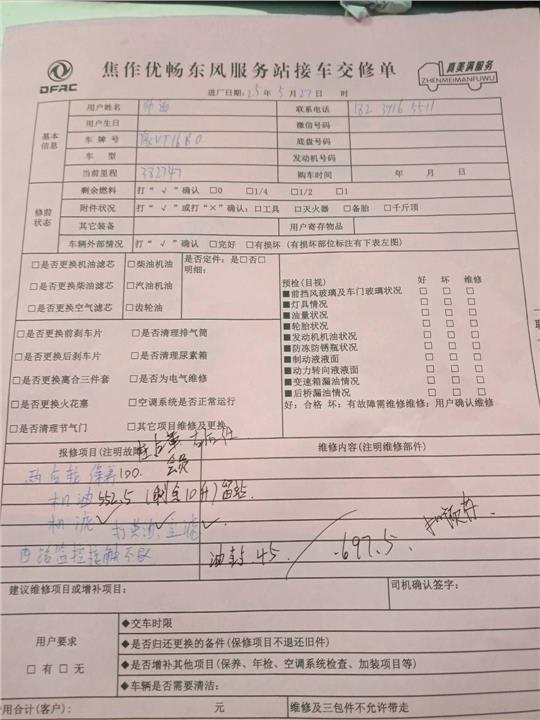 DFAC
焦作优畅东风服务站接车交修单
真美满服务
ZHENMEIMANFUWU
进厂日期:25年5月27日 时
基本信息
用户姓名 联系电话
用户生日 微信号码
车牌号 底盘号码
车型 发动机号码
当前里程 332747 购车时间 年 月 日
修前状态
剩余燃料 打“√”确认 □0 □1/4 □1/2 □1
附件状况 打“√”或打“×”确认:□工具 □灭火器 □备胎 □千斤顶
其它装备 用户寄存物品
车辆外部情况 打“√”确认 □完好 □有损坏(有损坏部位标注有下表左图)
□是否更换机油滤芯 □柴油机油 是否定件:是□否□
□是否更换柴油滤芯 □汽油机油 明细:
□是否更换空气滤芯 □齿轮油
□是否更换前刹车片 □是否清理排气筒
□是否更换后刹车片 □是否清理尿素箱
□是否更换离合三件套 □是否为电气维修
□是否更换火花塞 □空调系统是否正常运行
□是否清理节气门 □其它项目维修及更换
预检(目视) 好 坏 维修
■前挡风玻璃及车门玻璃状况 □ □ □
■灯具情况 □ □ □
■油量状况 □ □ □
■轮胎状况 □ □ □
■发动机机油状况 □ □ □
■防冻防锈瓶状况 □ □ □
■制动液液面 □ □ □
■动力转向液液面 □ □ □
■变速箱漏油情况 □ □ □
■后桥漏油情况 □ □ □
好:合格 坏:有故障需维修维修:用户确认维修
报修项目(注明故障 维修内容(注明维修部件)
会员
两后轮保养100.
机油552.5(剩余10升)留站.
机滤
油封.45
-697.5
建议维修项目或增补项目: 司机确认签字:
用户要求
□有 □无
◆交车时限
◆是否归还更换的备件(保修项目不退还旧件)
◆是否增补其他项目(保养、年检、空调系统检查、加装项目等)
◆车辆是否需要清洁:
用合计(客户): 元 维修及三包件不允许带走